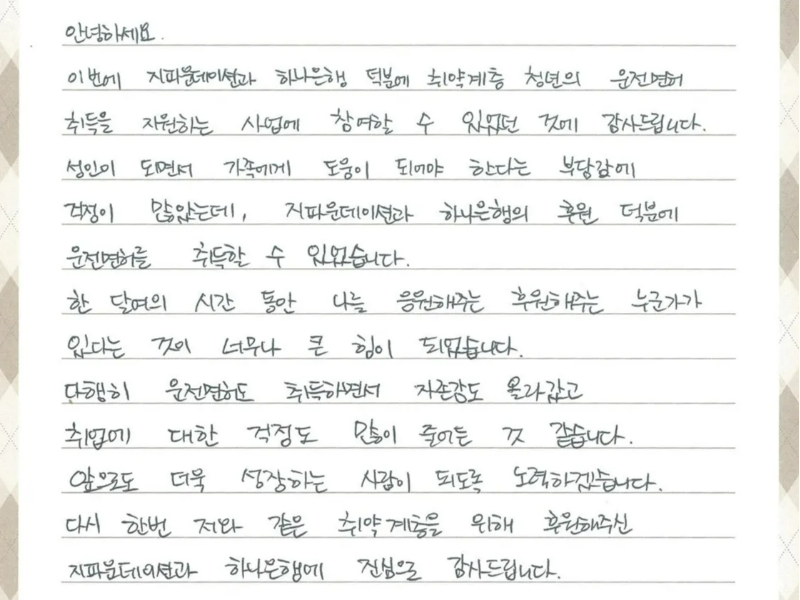 안녕하세요.
이번에 지파운데이션과 하나은행 덕분에 취약계층 청년의 운전면허
취득을 지원하는 사업에 참여할 수 있었던 것에 감사드립니다.
성인이 되면서 가족에게 도움이 되어야 한다는 부담감에
걱정이 많았는데, 지파운데이션과 하나은행의 후원 덕분에
운전면허를 취득할 수 있었습니다.
한 달여의 시간 동안 나를 응원해주는 후원해주는 누군가가
있다는 것이 너무나 큰 힘이 되었습니다.
다행히 운전면허도 취득하면서 자존감도 올라갔고
취업에 대한 걱정도 많이 줄어든 것 같습니다.
앞으로도 더욱 성장하는 사람이 되도록 노력하겠습니다.
다시 한번 저와 같은 취약계층을 위해 후원해주신
지파운데이션과 하나은행에 진심으로 감사드립니다.